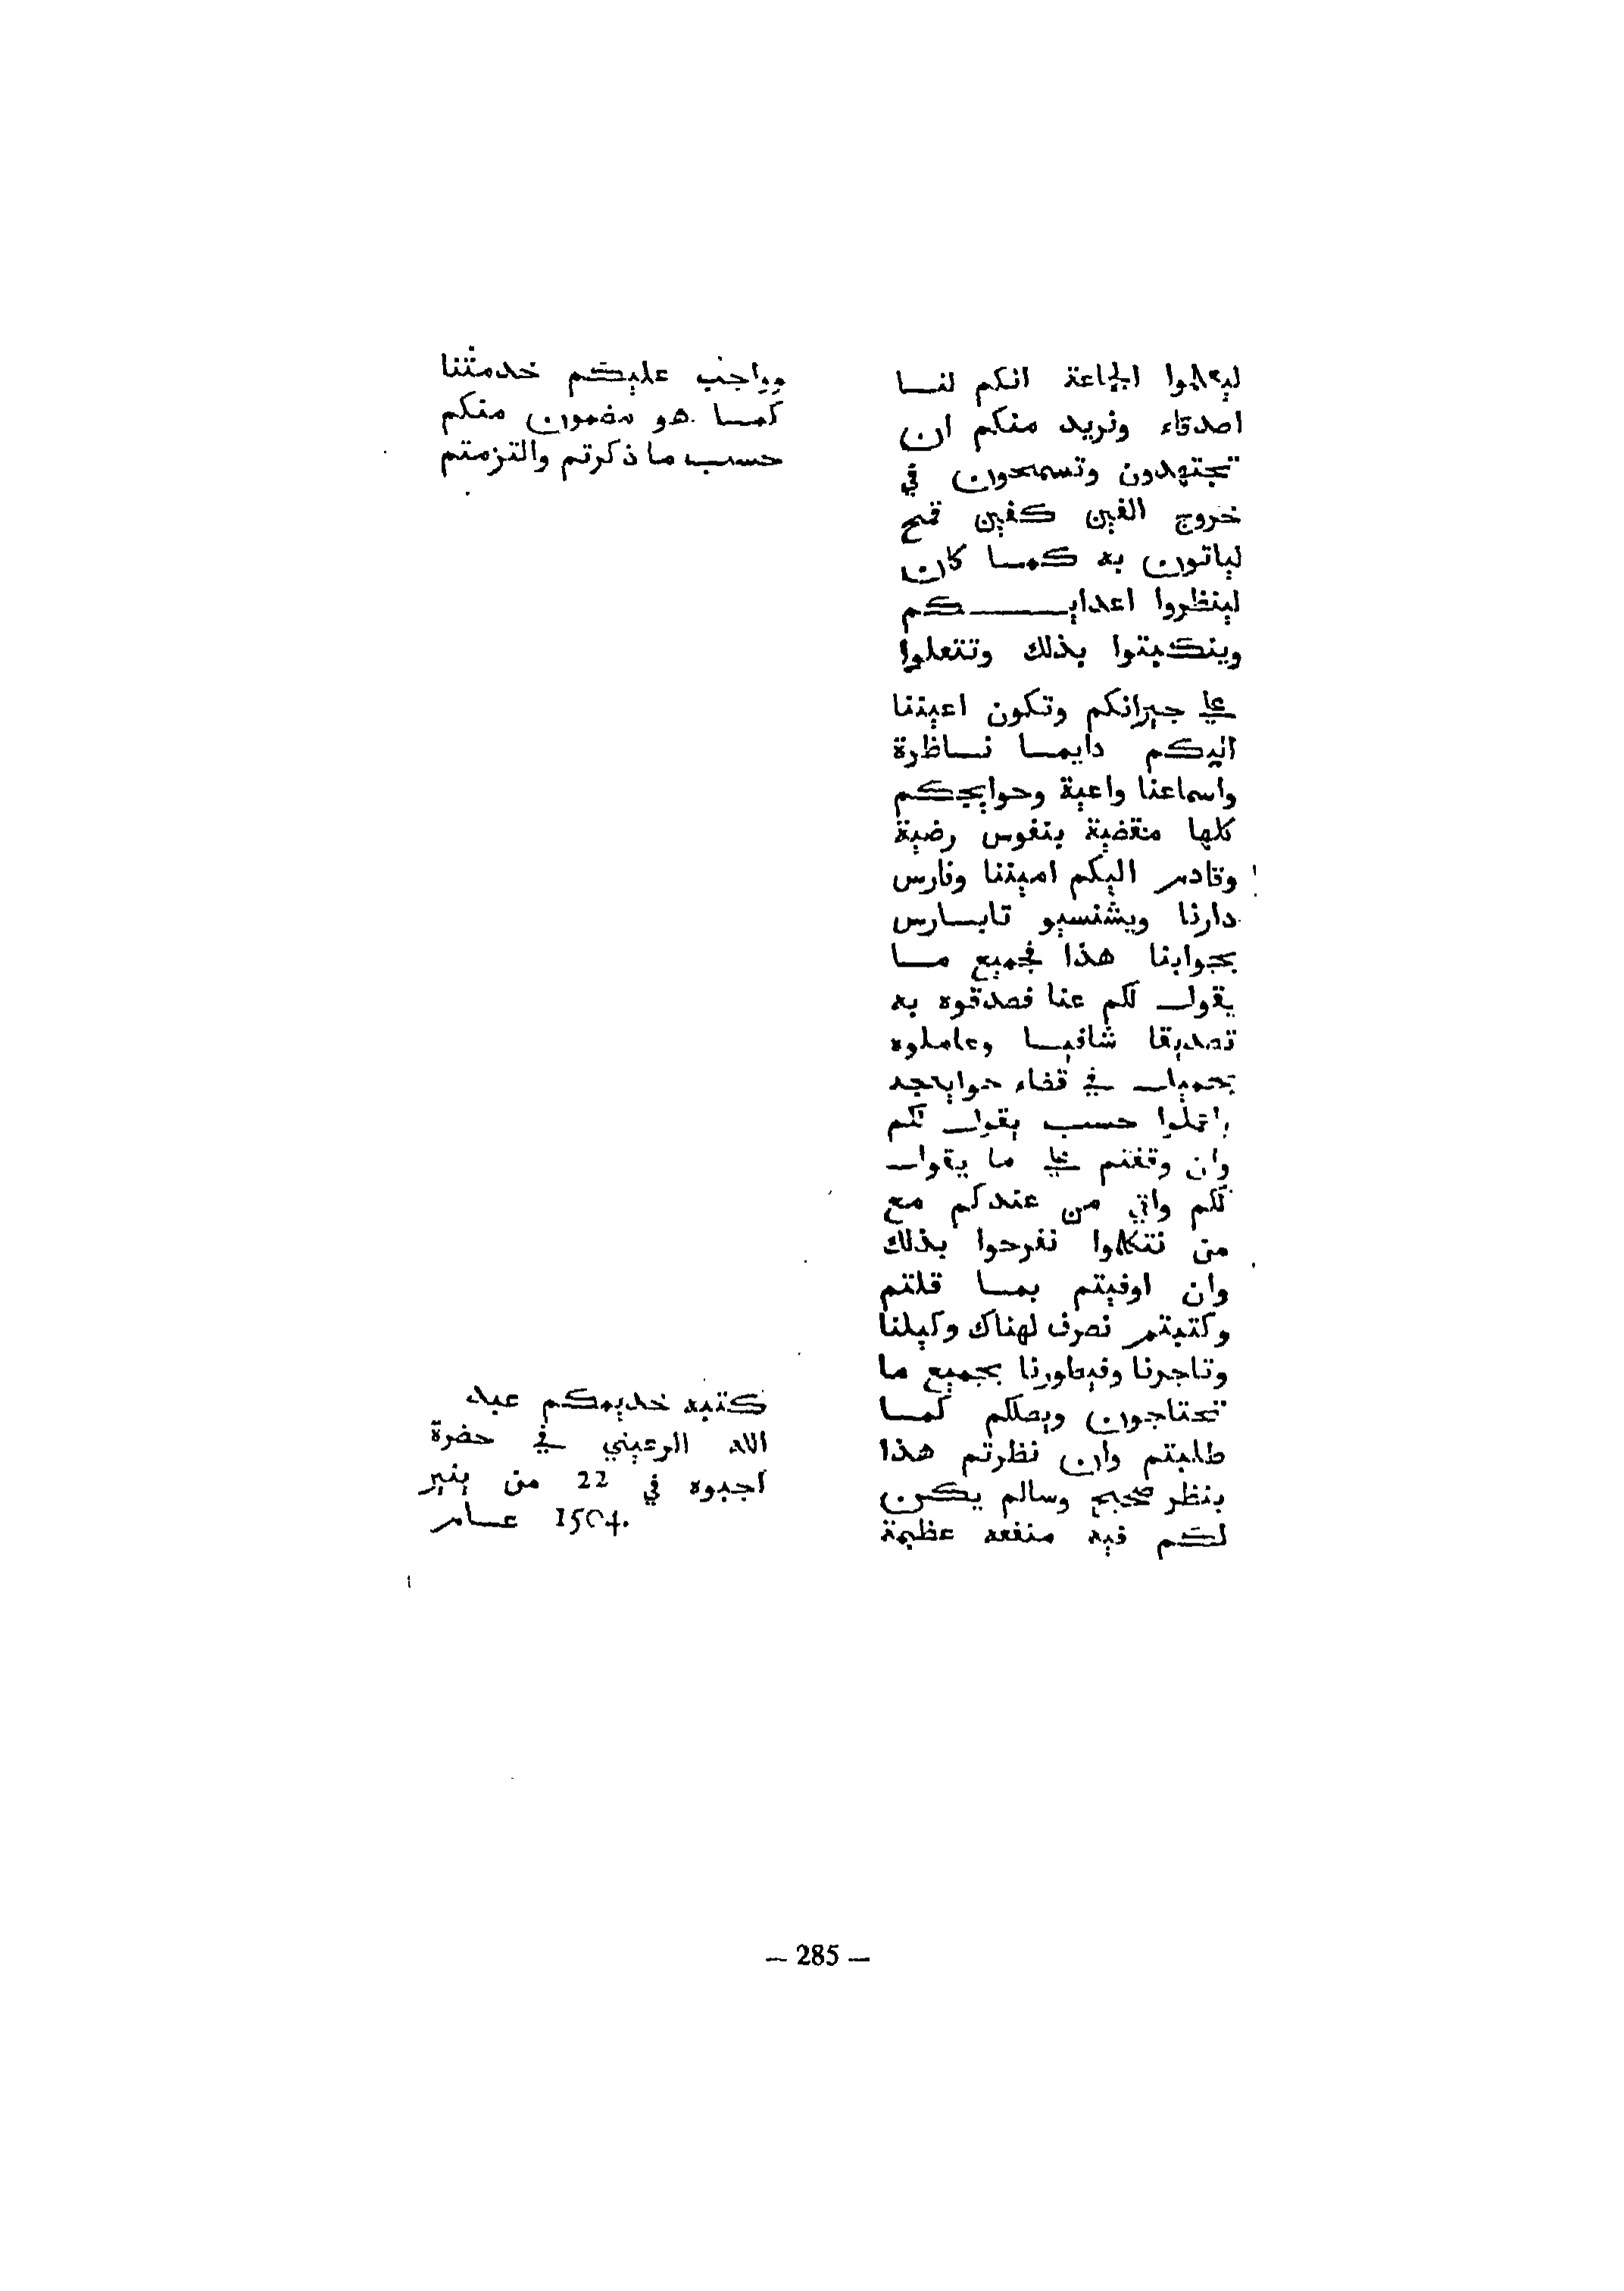 ليعلموا الجاعة انكم لنا
اصدقاء ونريد منكم ان
تجتهدون وتسمحون في
خروج الفين كفين قمح
لياتون به كما كان
لينظروا اعدايكم
وينكبتوا بذلك وتتعلوا
على جيرانكم وتكون اعيننا
اليكم دايما ناظرة
واسماعنا واعية وحوايجكم
كلها منقضية بنفوس رضية
وقادم اليكم اميننا وفارس
دارنا ويشنسيو تابارس
بجوابنا هذا فجميع ما
يقول لكم عنا فصدقوه به
تصديقا شافيا وعاملوه
بجميل في قضاء حوايجه
واعملوا حسب يقول لكم
وان وقفتم على ما يقول
لكم واتي من عندكم مع
من نتكلوا نفرحوا بذلك
وان اوفيتم بما قلتم
وكتبتم نصرف لهناك وكيلنا
وتاجرنا وفيطورنا بجميع ما
تحتاجون ويصلكم كما
طلبتم وان نظرتم هذا
بنظر صحيح وسالم يكن
لكم فيه منفعه عظيمة
وواجب عليكم خدمتنا
كما هو مضمون منكم
حسب ما ذكرتم والتزمتم
كتبه خديمكم عبد
الله الرعيني في حضرة
اجبوه في 22 من ينير
عام 1504.
— 285 —